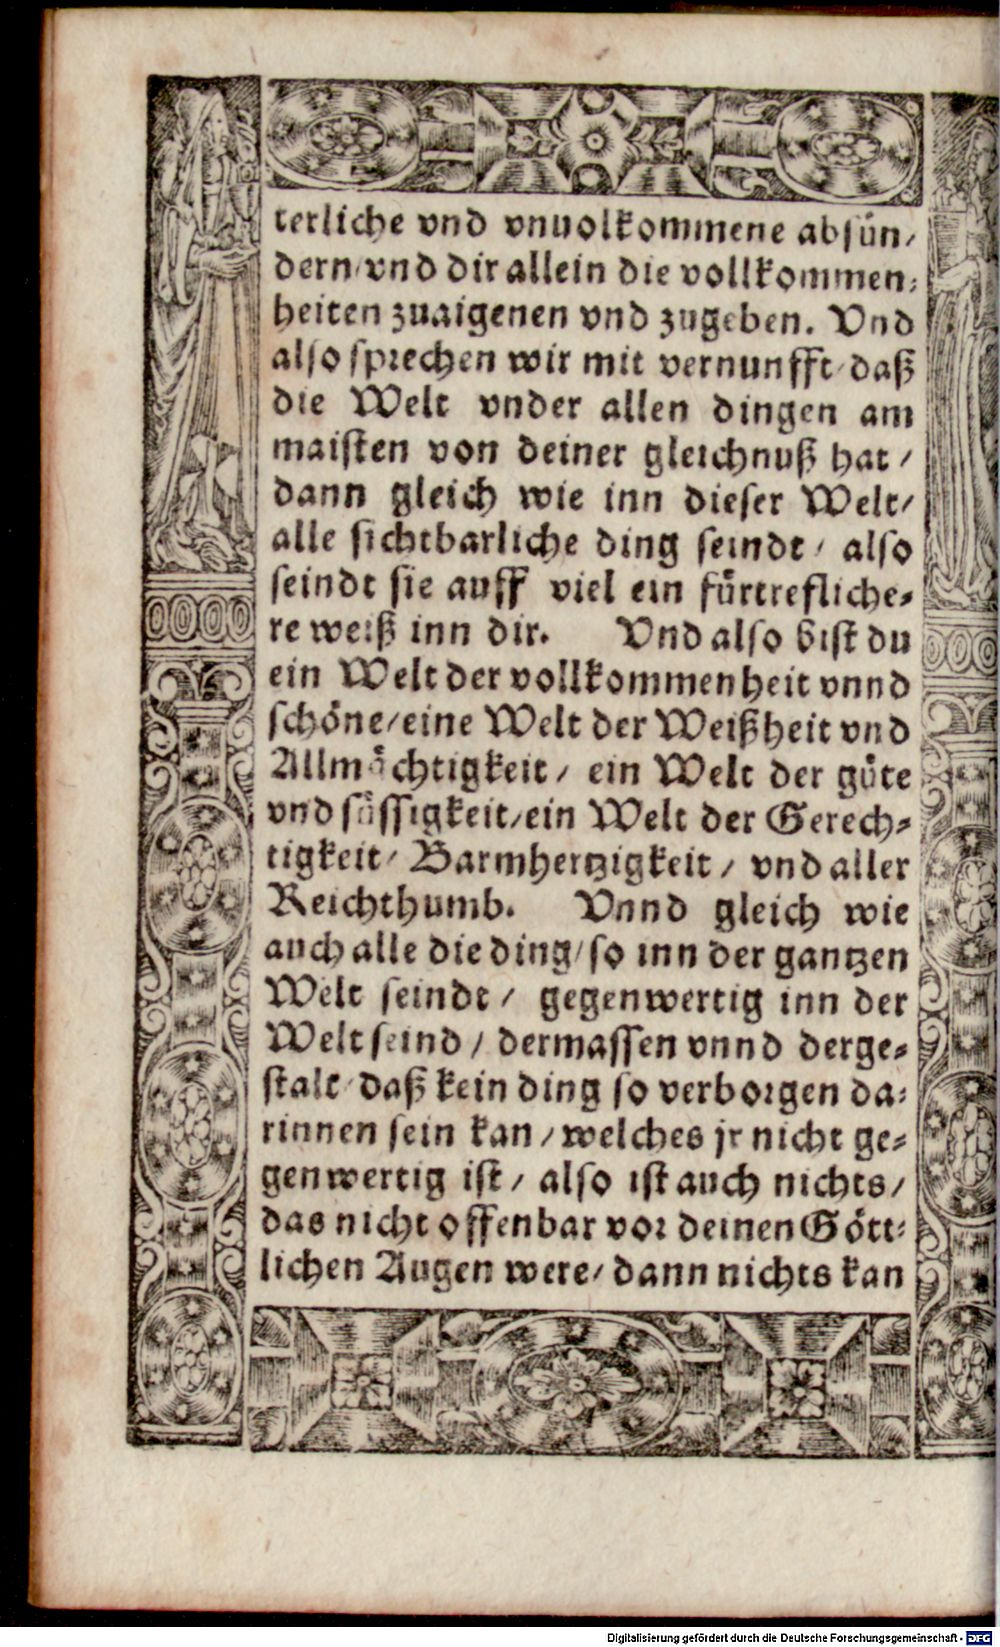 terliche vnd vnuolkommene absün/
dern/ vnd dir allein die vollkommen⸗
heiten zuaigenen vnd zugeben. Vnd
also sprechen wir mit vernunfft/ daß
die Welt vnder allen dingen am
maisten von deiner gleichnuß hat /
dann gleich wie inn dieser Welt/
alle sichtbarliche ding seindt / also
seindt sie auff viel ein fürtrefliche⸗
re weiß inn dir. Vnd also bist du
ein Welt der vollkommenheit vnnd
schöne/ eine Welt der Weißheit vnd
Allmächtigkeit / ein Welt der güte
vnd süssigkeit/ ein Welt der Gerech⸗
tigkeit/ Barmhertzigkeit / vnd aller
Reichthumb. Vnnd gleich wie
auch alle die ding/ so inn der gantzen
Welt seindt / gegenwertig inn der
Welt seind / dermassen vnnd derge⸗
stalt/ daß kein ding so verborgen da⸗
rinnen sein kan / welches jr nicht ge⸗
genwertig ist / also ist auch nichts /
das nicht offenbar vor deinen Gött⸗
lichen Augen were/ dann nichts kan
Digitalisierung gefördert durch die Deutsche Forschungsgemeinschaft - DFG